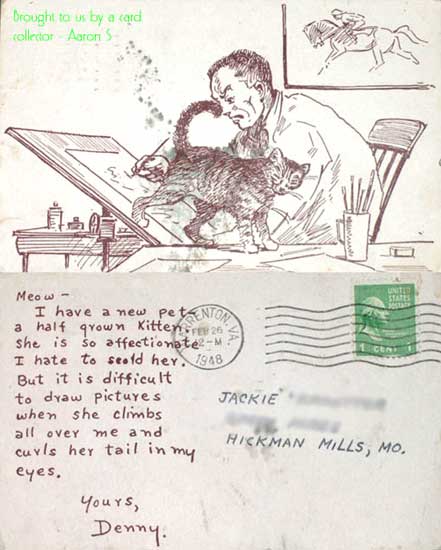 Brought to us by a card
collector - Aaron S
Meow -
I have a new pet -
a half grown kitten.
She is so affectionate
I hate to scold her.
But it is difficult
to draw pictures
when she climbs
all over me and
curls her tail in my
eyes.
Yours,
Denny.
RRENTON, VA.
FEB 26
2-M
1948
UNITED
STATES
POSTAGE
1 CENT 1
JACKIE
HICKMAN MILLS, MO.